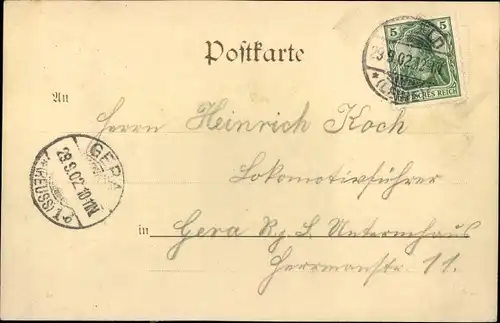 Postkarte
5 5
29.9.02.12-1N
DEUTSCHES REICH
An
Herrn Heinrich Koch
GERA
29.9.02.10-11N
(REUSS)
Lokomotivführer
in Gera R.j.L. Untermhaus
Herrmanstr 11.